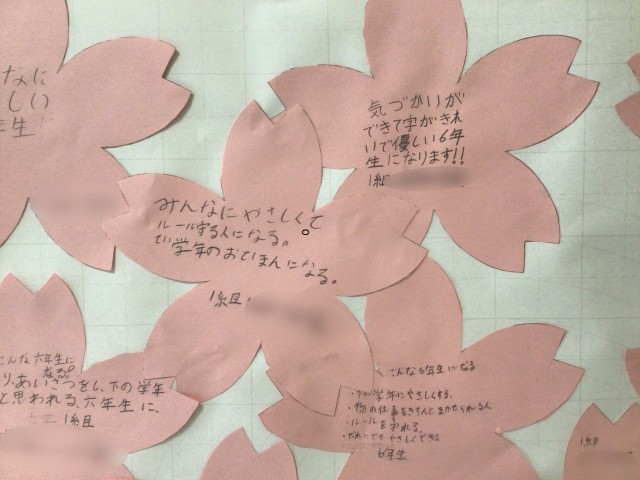 なに
しい
年生!
気づかいが
できて字がきれ
いで優しい6年
生になります!!
1組
みんなにやさしくて
ルール守る人になる。
学年のおてほんになる。
1組
こんな六年生に
なる。
り、あいさつをし、下の学年
と思われる、六年生に、
1組
こんな6年生になる
・下の学年にやさしくする。
・他の仕事をきちんとまかせられる人
・ルールを守れる。
・だれにでもやさしくできる
6年生
1組